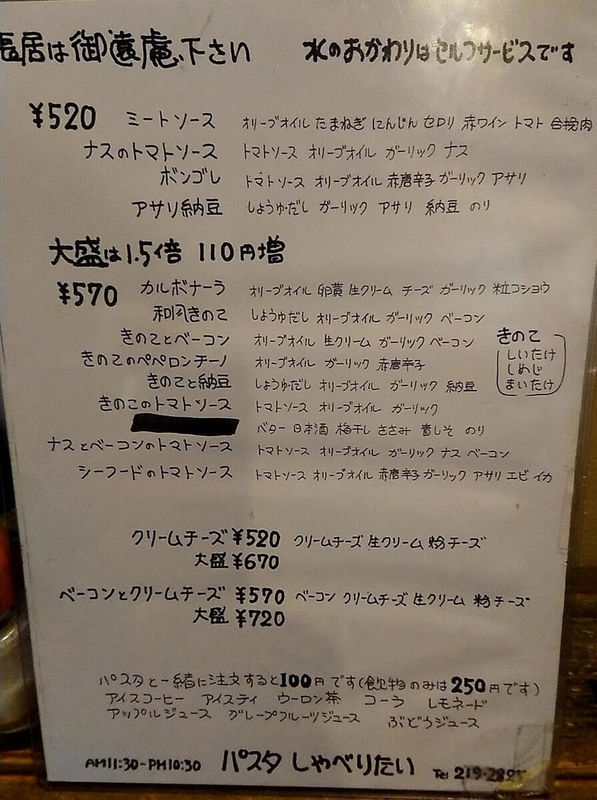 長居は御遠慮下さい 水のおかわりはセルフサービスです
¥520 ミートソース オリーブオイル たまねぎ にんじん セロリ 赤ワイン トマト 合挽肉
ナスのトマトソース トマトソース オリーブオイル ガーリック ナス
ボンゴレ トマトソース オリーブオイル 赤唐辛子 ガーリック アサリ
アサリ納豆 しょうゆ・だし ガーリック アサリ 納豆 のり
大盛は1.5倍 110円増
¥570 カルボナーラ オリーブオイル 卵黄 生クリーム チーズ ガーリック 粒コショウ
和風きのこ しょうゆだし オリーブオイル ガーリック ベーコン
きのことベーコン オリーブオイル 生クリーム ガーリック ベーコン
きのこのペペロンチーノ オリーブオイル ガーリック 赤唐辛子
きのこと納豆 しょうゆ・だし オリーブオイル ガーリック 納豆
きのこ
しいたけ
しめじ
まいたけ
きのこのトマトソース トマトソース オリーブオイル ガーリック
バター 日本酒 梅干し ささみ 青しそ のり
ナスとベーコンのトマトソース トマトソース オリーブオイル ガーリック ナス ベーコン
シーフードのトマトソース トマトソース オリーブオイル 赤唐辛子 ガーリック アサリ エビ イカ
クリームチーズ ¥520 クリームチーズ 生クリーム 粉チーズ
大盛 ¥670
ベーコンとクリームチーズ ¥570 ベーコン クリームチーズ 生クリーム 粉チーズ
大盛 ¥720
パスタと一緒に注文すると100円です(飲物のみは250円です)
アイスコーヒー アイスティ ウーロン茶 コーラ レモネード
アップルジュース グレープフルーツジュース ぶどうジュース
AM11:30~PM10:30 パスタ しゃべりたい Tel